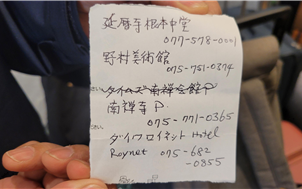 延暦寺根本中堂
077-578-0001
野村美術館
075-751-0374
タイムズ南禅会館P
南禅寺P
075-771-0365
ダイワロイネット Hotel
Roynet 075-682
-0855